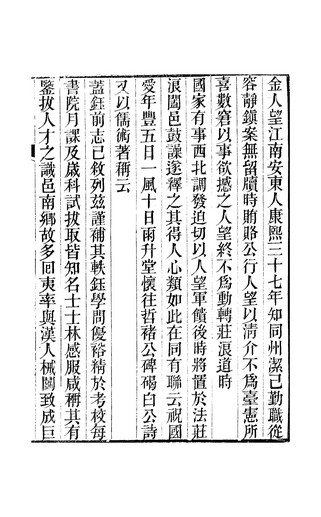 金人望江南安東人康熙三十七年知同州潔己勤職從
容靜鎮案無留牘時賄賂公行人望以清介不爲臺憲所
喜數窘以事欲撼之人望終不爲動轉莊浪道時
國家有事西北調發迫切以人望軍饋後時將置於法莊
浪闔邑鼓譟遂釋之其得人心類如此在同有聯云視國
愛年豐五日一風十日雨升堂懷往哲褚公碑碣白公詩
又以儒術著稱云
蓋鈺前志已敘列玆謹補其軼鈺學問優裕精於考校每
書院月課及歲科試拔取皆知名士士林感服咸稱其有
鑒拔人才之識邑南鄉故多回夷率與漢人械鬬致成巨